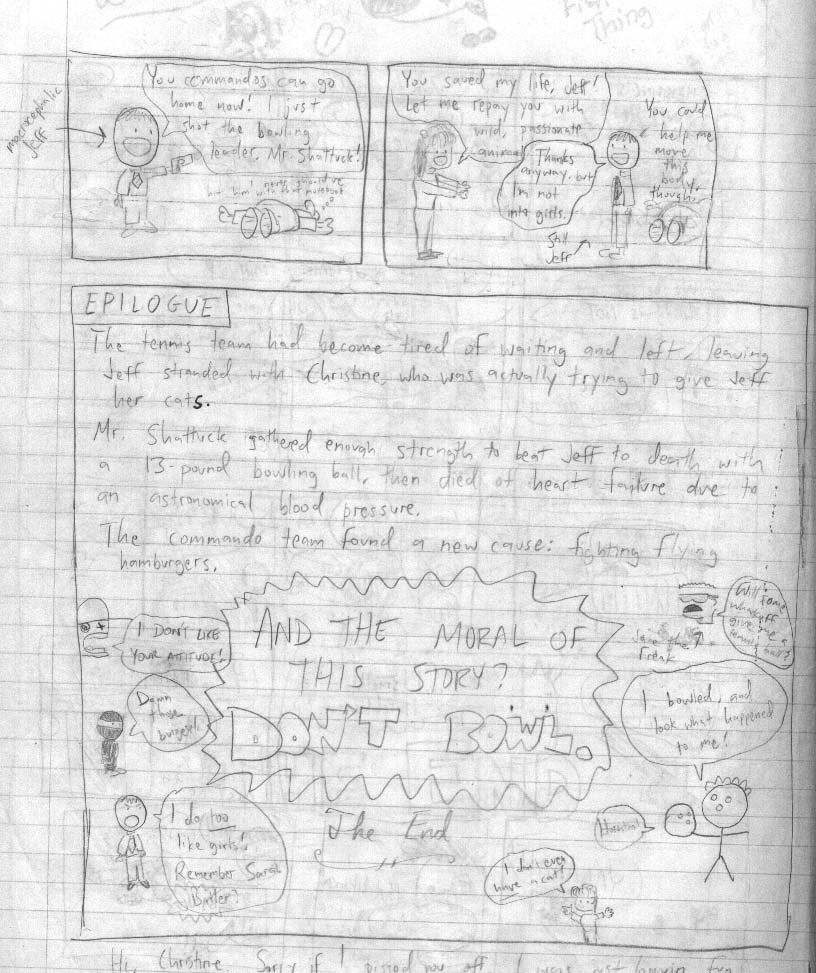 Thing
macrocephalic
Jeff
You commandos can go
home now! I just
shot the bowling
leader, Mr. Shattuck!
You saved my life, Jeff!
Let me repay you with
wild, passionate
Thanks
anyway, but
I'm not
into girls.
You could
help me
move
this
body,
though.
Still
Jeff
EPILOGUE
The tennis team had become tired of waiting and left, leaving
Jeff stranded with Christine, who was actually trying to give Jeff
her cats.
Mr. Shattuck gathered enough strength to beat Jeff to death with
a 13-pound bowling ball, then died of heart failure due to
an astronomical blood pressure.
The commando team found a new cause: fighting flying
hamburgers.
I DON'T LIKE
YOUR ATTITUDE!
AND THE MORAL OF
THIS STORY?
DON'T BOWL.
Will
give me a
the
Freak
Damn
those
I bowled, and
look what happened
to me!
I do too
like girls!
Remember Sarah
Butler?
The End
I don't even
have a cat!
Hi, Christine. Sorry if I pissed you off. I was just